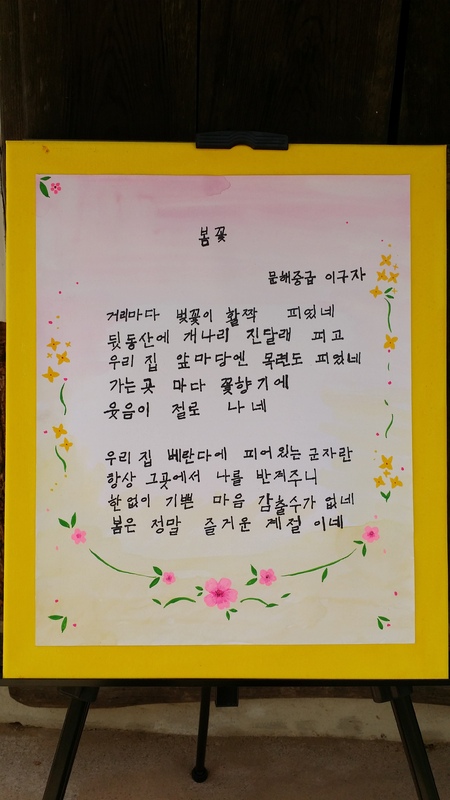 봄꽃
문해중급 이구자
거리마다 벚꽃이 활짝 피있네
뒷동산에 개나리 진달래 피고
우리 집 앞마당엔 목련도 피었네
가는곳 마다 꽃향기에
웃음이 절로 나네
우리 집 베란다에 피어있는 군자란
항상 그곳에서 나를 반겨주니
한없이 기쁜 마음 감출수가 없네
봄은 정말 즐거운 계절 이네